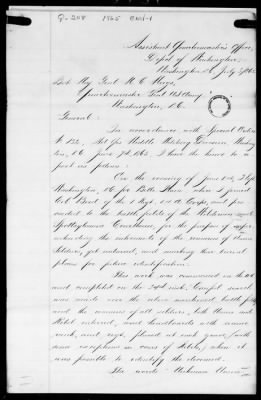 Q-208 1865
Assistant Quartermaster's Office,
Depot of Washington,
Washington, D.C. July
Bvt. Maj. Genl. M. C. Meigs,
Quartermaster Genl. U.S. Army
Washington, D.C.
General:
In accordance with Special Orders
Middle Military Division, Washing-
ton, D.C. June 7th, 1865, I have the honor to re-
port as follows:
On the evening of June I left
Washington, D.C. for Belle Plain where I joined
Col. Bird of the 1st Regt. Corps, and pro-
ceeded to the battle fields of the Wilderness and
Spottsylvania Courthouse, for the purpose of super-
intending the interments of the remains of Union
Soldiers, yet unburied, and marking their burial
places for future identification.
This work was commenced on the
and completed on the 24th inst. Careful search
was made over the above mentioned battle fields
and the remains of all soldiers, both Union and
Rebel interred, and headboards with name,
rank, and regt. placed at each grave, (with
some exceptions in cases of Rebels,) when it
was possible to identify the deceased.
The words "Unknown Union